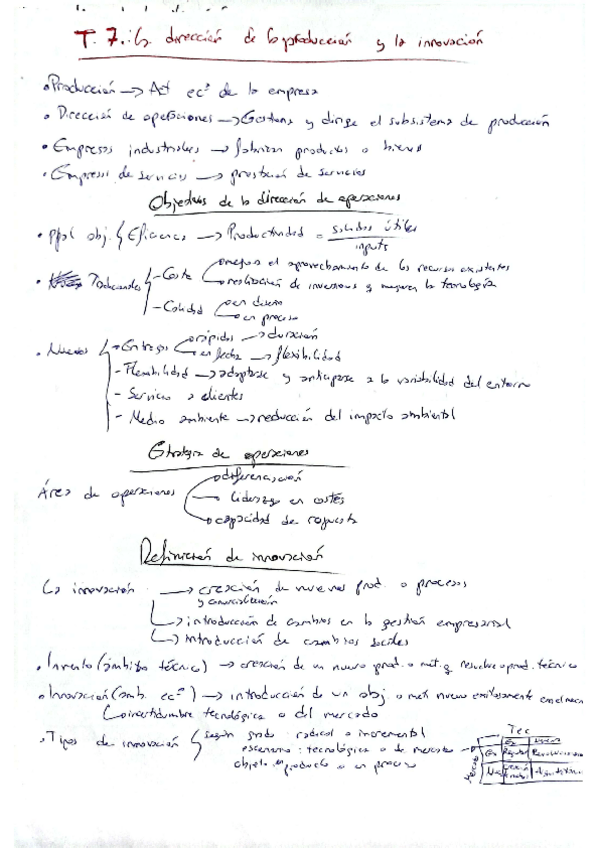 T. 7.: La dirección de la producción y la innovación
• Producción → Act ecª de la empresa
• Dirección de operaciones → Gestiona y dirige el subsistema de producción
• Empresas industriales → fabrican productos o bienes
• Empresas de servicios → prestación de servicios
Objetivos de la dirección de operaciones
• Ppal obj. Eficiencia → Productividad = salidas útiles / inputs
• Tradicionales - Coste → mejora el aprovechamiento de los recursos existentes
→ realización de inversiones y mejorar la tecnología
- Calidad → en diseño
→ en proceso
• Nuevos - Entregas → rápidas → duración
→ en fecha → flexibilidad
- Flexibilidad → adaptarse y anticiparse a la variabilidad del entorno
- Servicio a clientes
- Medio ambiente → reducción del impacto ambiental
Estrategia de operaciones
Área de operaciones → diferenciación
→ liderazgo en costes
→ capacidad de respuesta
Definición de innovación
La innovación → creación de nuevos prod. o procesos
y comercialización
→ introducción de cambios en la gestión empresarial
→ introducción de cambios sociales
• Invento (ámbito técnico) → creación de un nuevo prod. o mét. q resuelve prod. técnico
• Innovación (amb. ecº) → introducción de un obj. o met. nuevo exitosamente en el merca
incertidumbre tecnológica o del mercado
• Tipos de innovación según grado: radical o incremental
escenario: tecnológica o de mercado
objeto: en producto o en proceso
Tec
Mercado